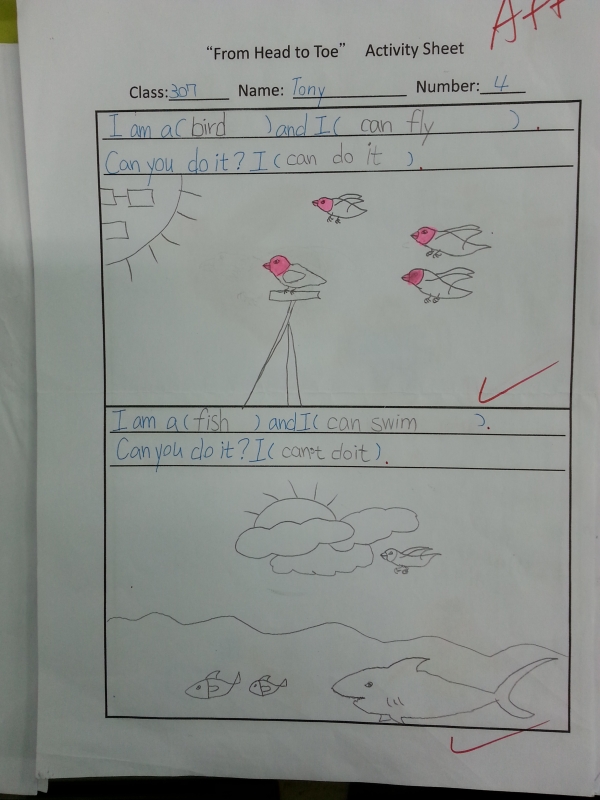 A++
“From Head to Toe” Activity Sheet
Class: 307 Name: Tony Number: 4
I am a ( bird ) and I ( can fly ).
Can you do it? I ( can do it ).
I am a ( fish ) and I ( can swim ).
Can you do it? I ( can't do it ).